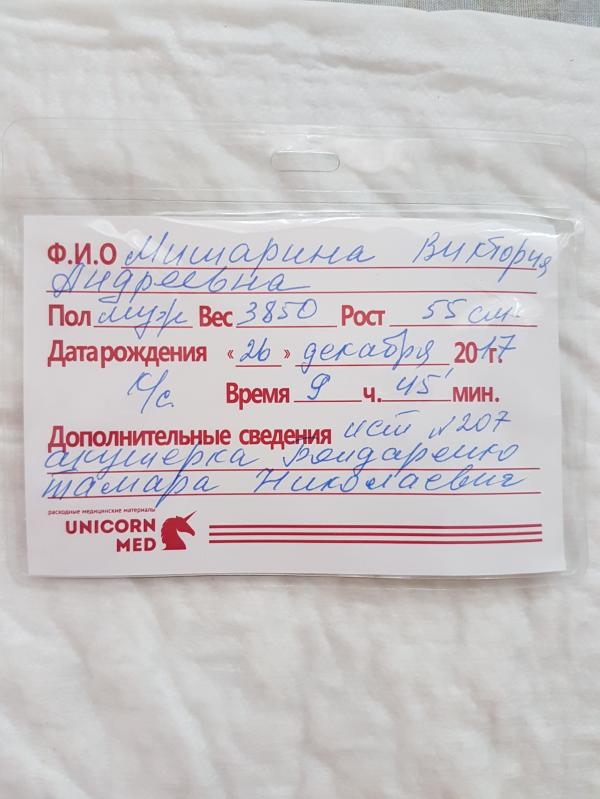 Ф.И.О Мишарина Виктория
Андреевна
Пол муж Вес 3850 Рост 55 см
Дата рождения «26» декабря 2017 г.
К/с Время 9 ч. 45' мин.
Дополнительные сведения ист №207
акушерка Бондаренко
тамара Николаевна
расходные медицинские материалы
UNICORN
MED